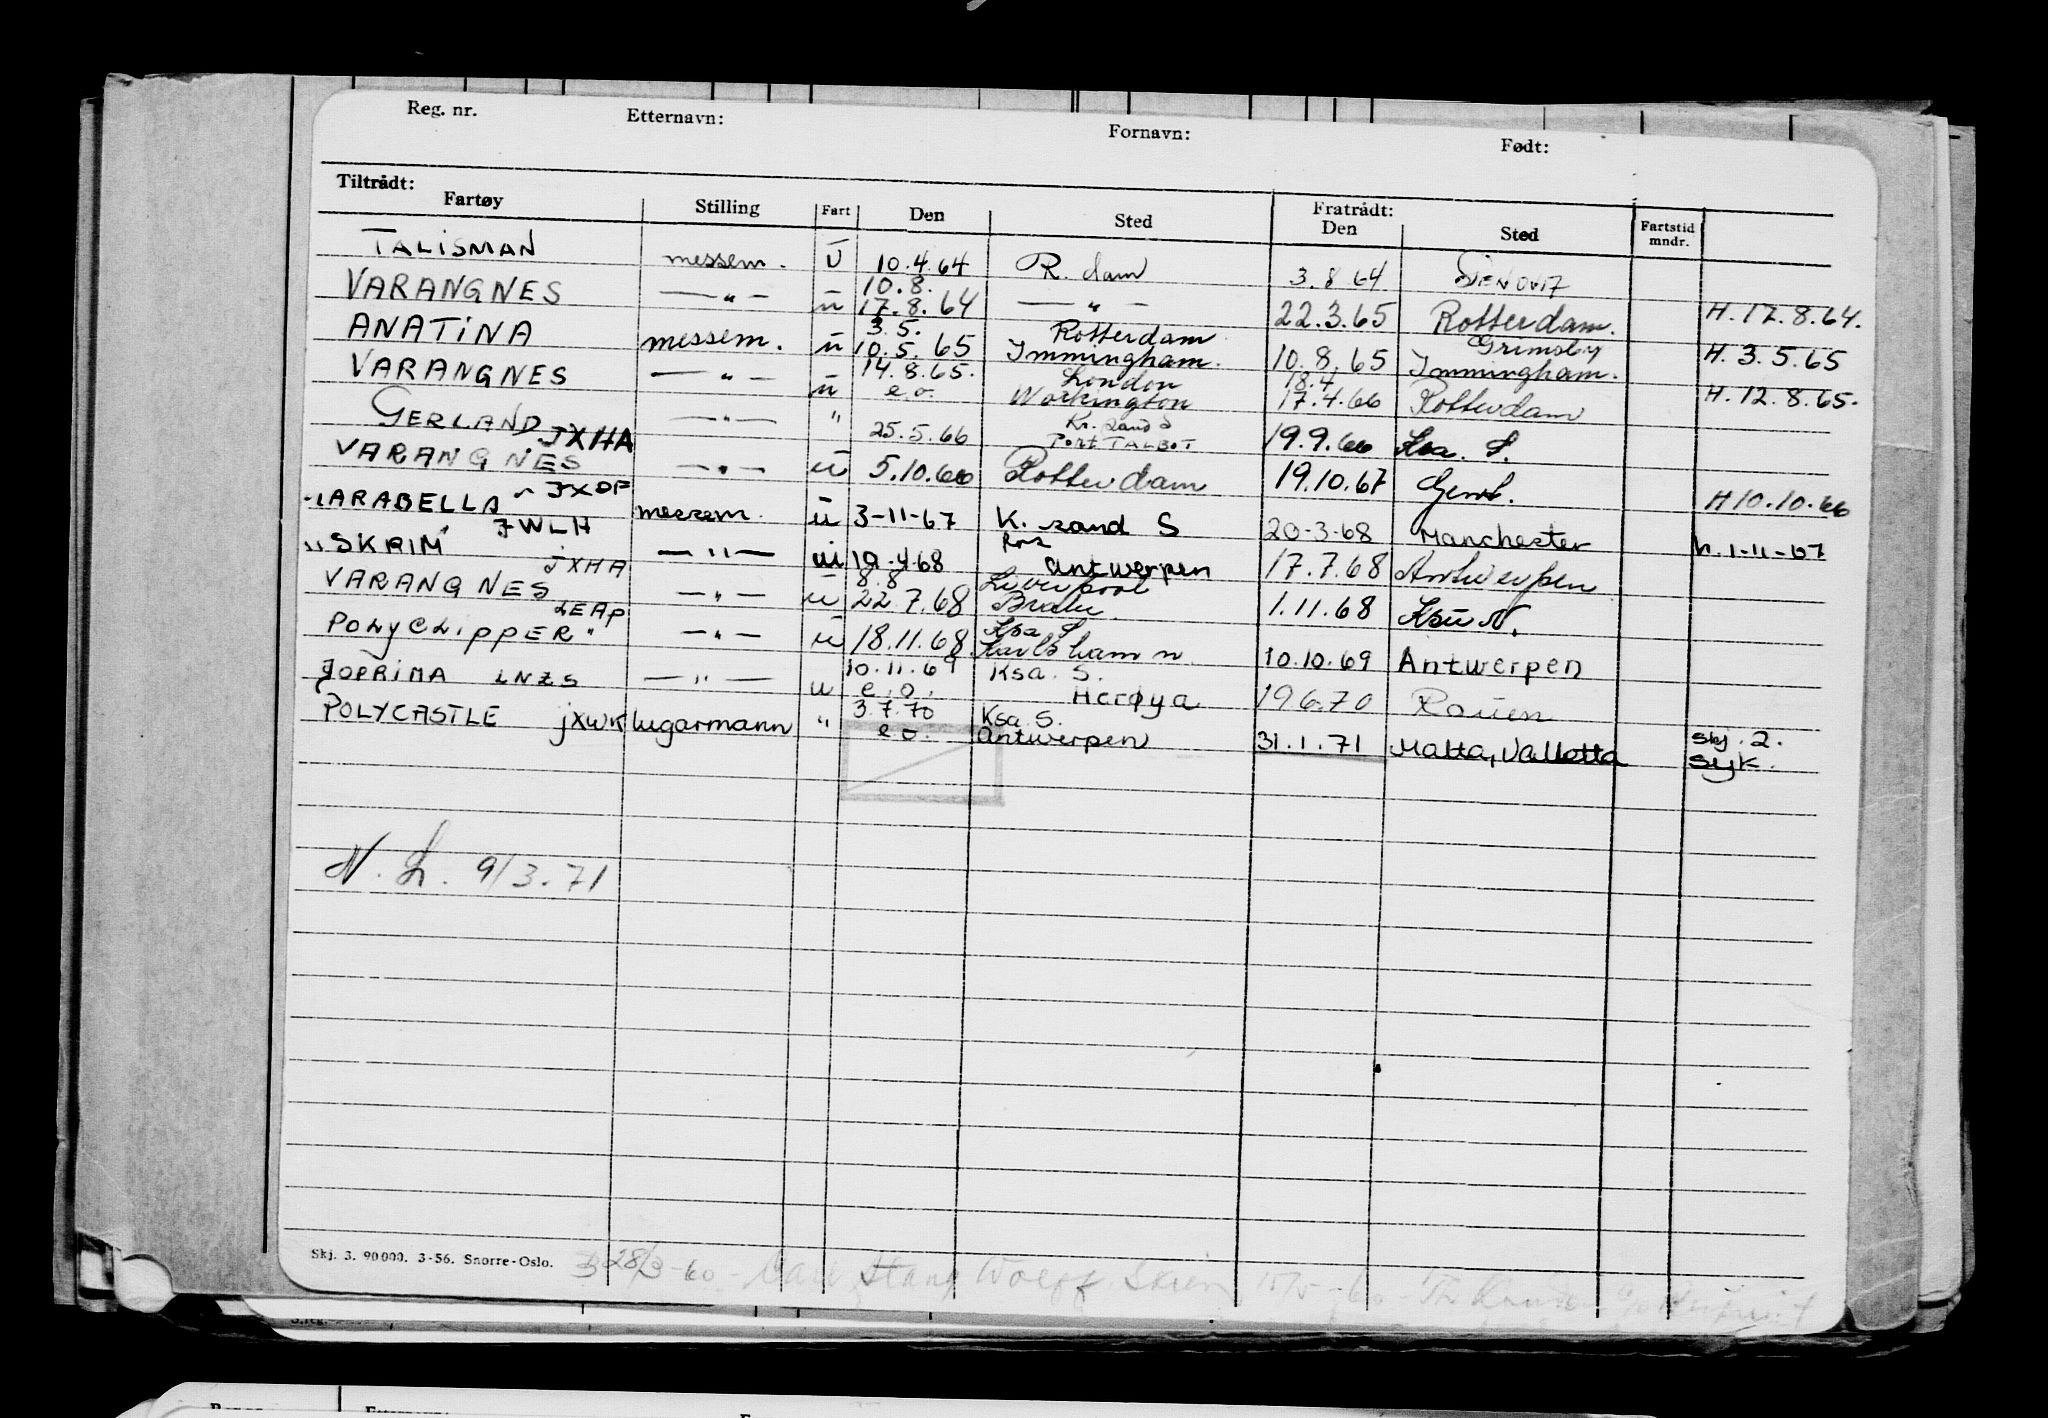 Reg. nr. Etternavn: Fornavn: Født:
Tiltrådt: Fratrådt:
Fartøy Stilling Fart Den Sted Den Sted Fartstid mndr.
TALISMAN messem. U 10.4.64 R. dam 3.8 64
10.8.
VARANGNES — " — u 17.8.64 — " — 22.3.65 Rotterdam. H. 17.8.64.
3.5. Rotterdam Grimsby
ANATINA messem. u 10.5.65 Immingham. 10.8.65 Immingham. H. 3.5.65
14.8.65. London 18.4
VARANGNES — " — u e.o. Workington 17.4.66 Rotterdam H. 12.8.65.
Kr. sand S
GERLAND — " — " 25.5.66 Port TALBOT 19.9.66 Ksa. S.
JXHA
VARANGNES — " — u 5.10.66 Rotterdam 19.10.67 Gent. H 10.10.66
JXDF
ARABELLA messem. u 3-11-67 K. sand S 20-3-68 Manchester h. 1-11-67
JWLH
"SKRIM" — " — u 10.4.68 Antwerpen 17.7.68 Antwerpen
JXHA 8.8 Liverpool
VARANGNES — " — u 22.7.68 Brake 1.11.68 Ksu N.
LEAP Ksa S
POLYCLIPPER" — " — u 18.11.68. Karlshamn. 10.10.69 Antwerpen
10.11.69 Ksa. S.
JOPRIMA LNZS — " — u e.o. Herøya 19.6.70 Rouen
3.7.70 Ksa S.
POLYCASTLE JXWK lugarmann " e o. Antwerpen 31.1.71 Malta, Valletta skj. 2. syk.
N. L. 9/3.71
Skj. 3. 90000. 3-56. Snorre-Oslo. 28/3-60 - Carl Stang Wolff. Skien